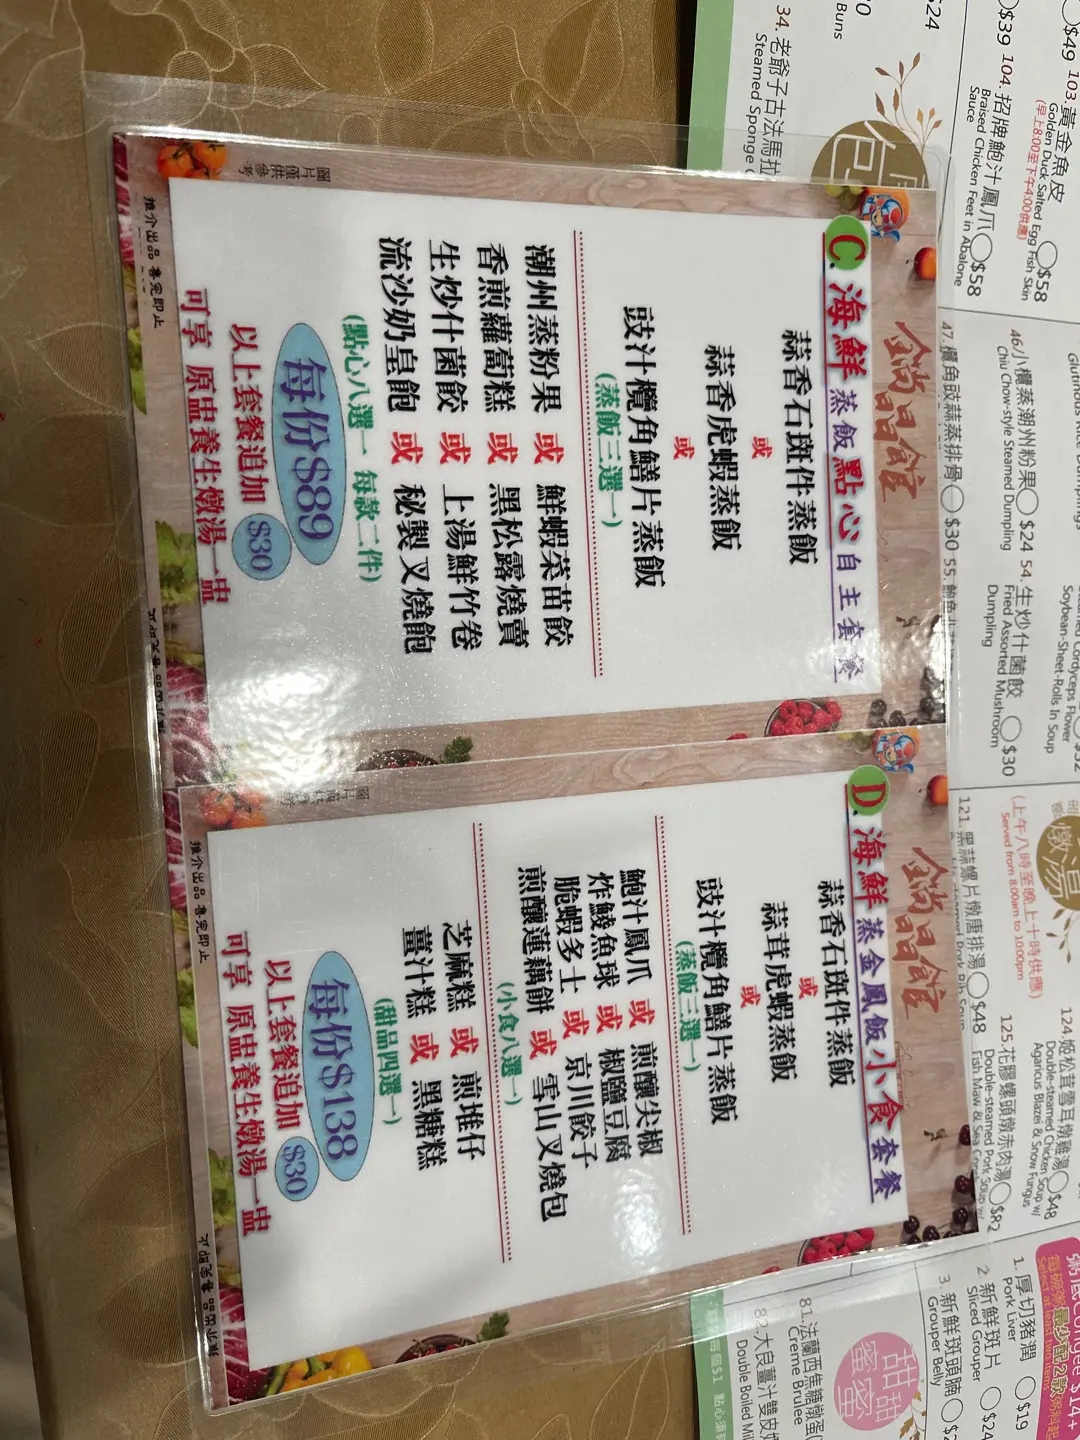 C. 海鮮蒸飯點心自主套餐
蒜香石斑件蒸飯
或
蒜香虎蝦蒸飯
或
豉汁欖角鱔片蒸飯
(蒸飯三選一)
潮州蒸粉果 或 鮮蝦菜苗餃
香煎蘿蔔糕 或 黑松露燒賣
生炒什菌餃 或 上湯鮮竹卷
流沙奶皇飽 或 秘製叉燒飽
(點心八選一 每款二件)
每份$89
以上套餐追加 $30
可享 原盅養生燉湯一盅
推介出品 售完即止
圖片僅供參考
D. 海鮮蒸金鳳飯小食套餐
蒜香石斑件蒸飯
或
蒜茸虎蝦蒸飯
或
豉汁欖角鱔片蒸飯
(蒸飯三選一)
鮑汁鳳爪 或 煎釀尖椒
炸鯪魚球 或 椒鹽豆腐
脆蝦多士 或 京川餃子
煎釀蓮藕餅 或 雪山叉燒包
(小食八選一)
芝麻糕 或 煎堆仔
薑汁糕 或 黑糖糕
(甜品四選一)
每份$138
以上套餐追加 $30
可享 原盅養生燉湯一盅
推介出品 售完即止
$24
Buns
34. 老爺子古法馬拉
Steamed Sponge
包
$49
103. 黃金魚皮 $58
Golden Duck Salted Egg Fish Skin
(早上8:00至下午4:00供應)
$39
104. 招牌鮑汁鳳爪 $58
Braised Chicken Feet in Abalone
Sauce
46. 小欖蒸潮州粉果 $24
Chiu Chow-style Steamed Dumpling
47. 欖角豉蒜蒸排骨 $30
Soybean-Sheet-Rolls In Soup
54. 生炒什菌餃 $30
Fried Assorted Mushroom
Dumpling
55.
燉湯
(上午八時至晚上十時供應)
Served from 8:00am to 10:00pm
121. 黑蒜螺片燉唐排湯 $48
124. 姬松茸雪耳燉雞湯 $48
Double-steamed Chicken Soup w/
Agaricus Blazei & Snow Fungus
125. 花膠螺頭燉赤肉湯 $82
Double-steamed Pork Soup w/
粥底Congee $14+
每碗粥最少配2款粥料起
Select at least two items
1. 厚切豬潤 $19
Pork Liver
2. 新鮮斑片 $24
Sliced Grouper
3. 新鮮斑頭腩
Grouper Belly
甜甜蜜蜜
81. 法蘭西焦糖燉蛋
Creme Brulee
82. 大良薑汁雙皮
Double Boiled